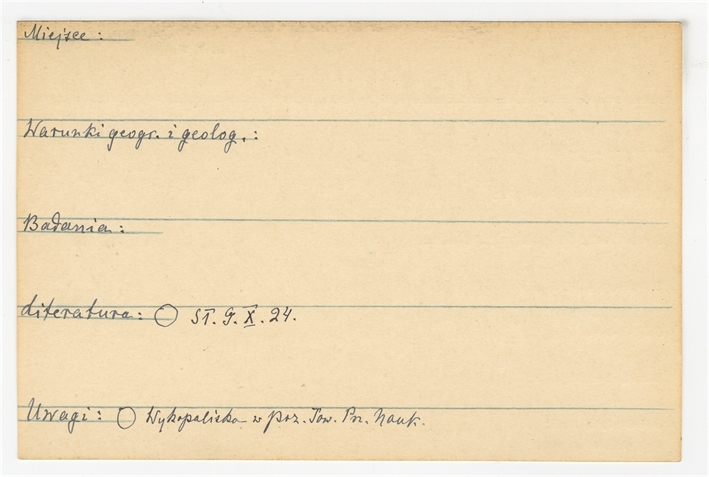 Miejsce:
Warunki geogr. i geolog.:
Badania:
Literatura: ◯ ST. G. X. 24.
Uwagi: ◯ Wykopalisko w poz. Tow. Prz. Nauk.